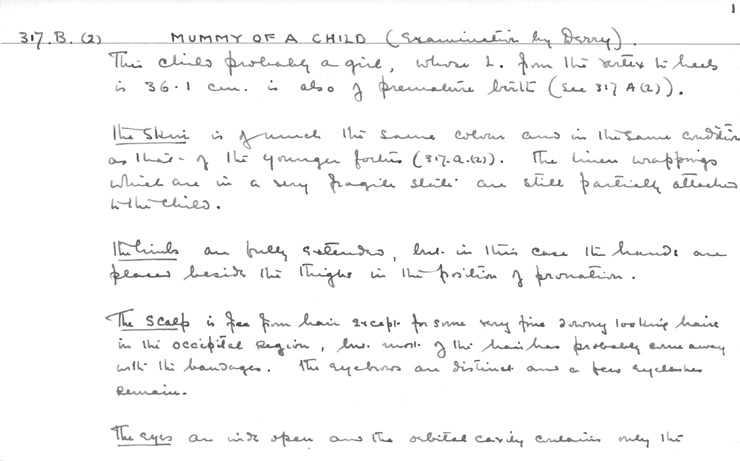 1
317.B.(2) MUMMY OF A CHILD (Examination by Derry).
This child probably a girl, whose L. from the vertex to heels
is 36.1 cm. is also of premature birth (see 317 A(2)).
The Skin is of much the same colour and in the same condition
as that of the younger foetus (317.a.(2)). The linen wrappings
which are in a very fragile state are still partially attached
to the child.
The limbs are fully extended, but in this case the hands are
placed beside the thighs in the position of pronation.
The Scalp is free from hair except for some very fine downy looking hair
in the occipital region, but most of the hair has probably come away
with the bandages. The eyebrows are distinct and a few eyelashes
remain.
The eyes are wide open and the orbital cavity contains only the